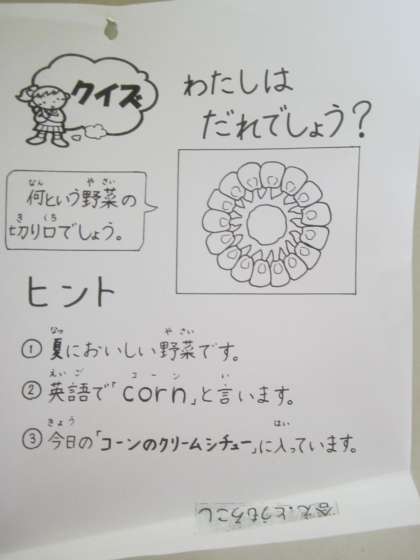 クイズ
わたしは
だれでしょう?
何という野菜の
切り口でしょう。
ヒント
① 夏においしい野菜です。
② 英語で「corn」と言います。
③ 今日の「コーンのクリームシチュー」に入っています。
答え:とうもろこし